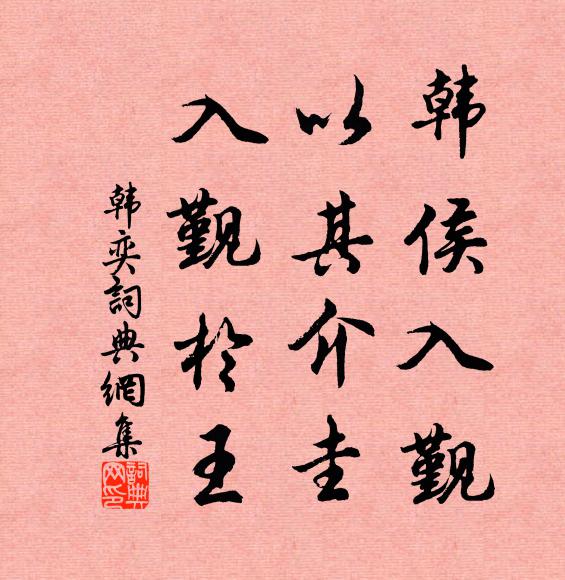 韩侯入觐
以其介圭
入觐於王
韩奕詞典網集
詞典网印